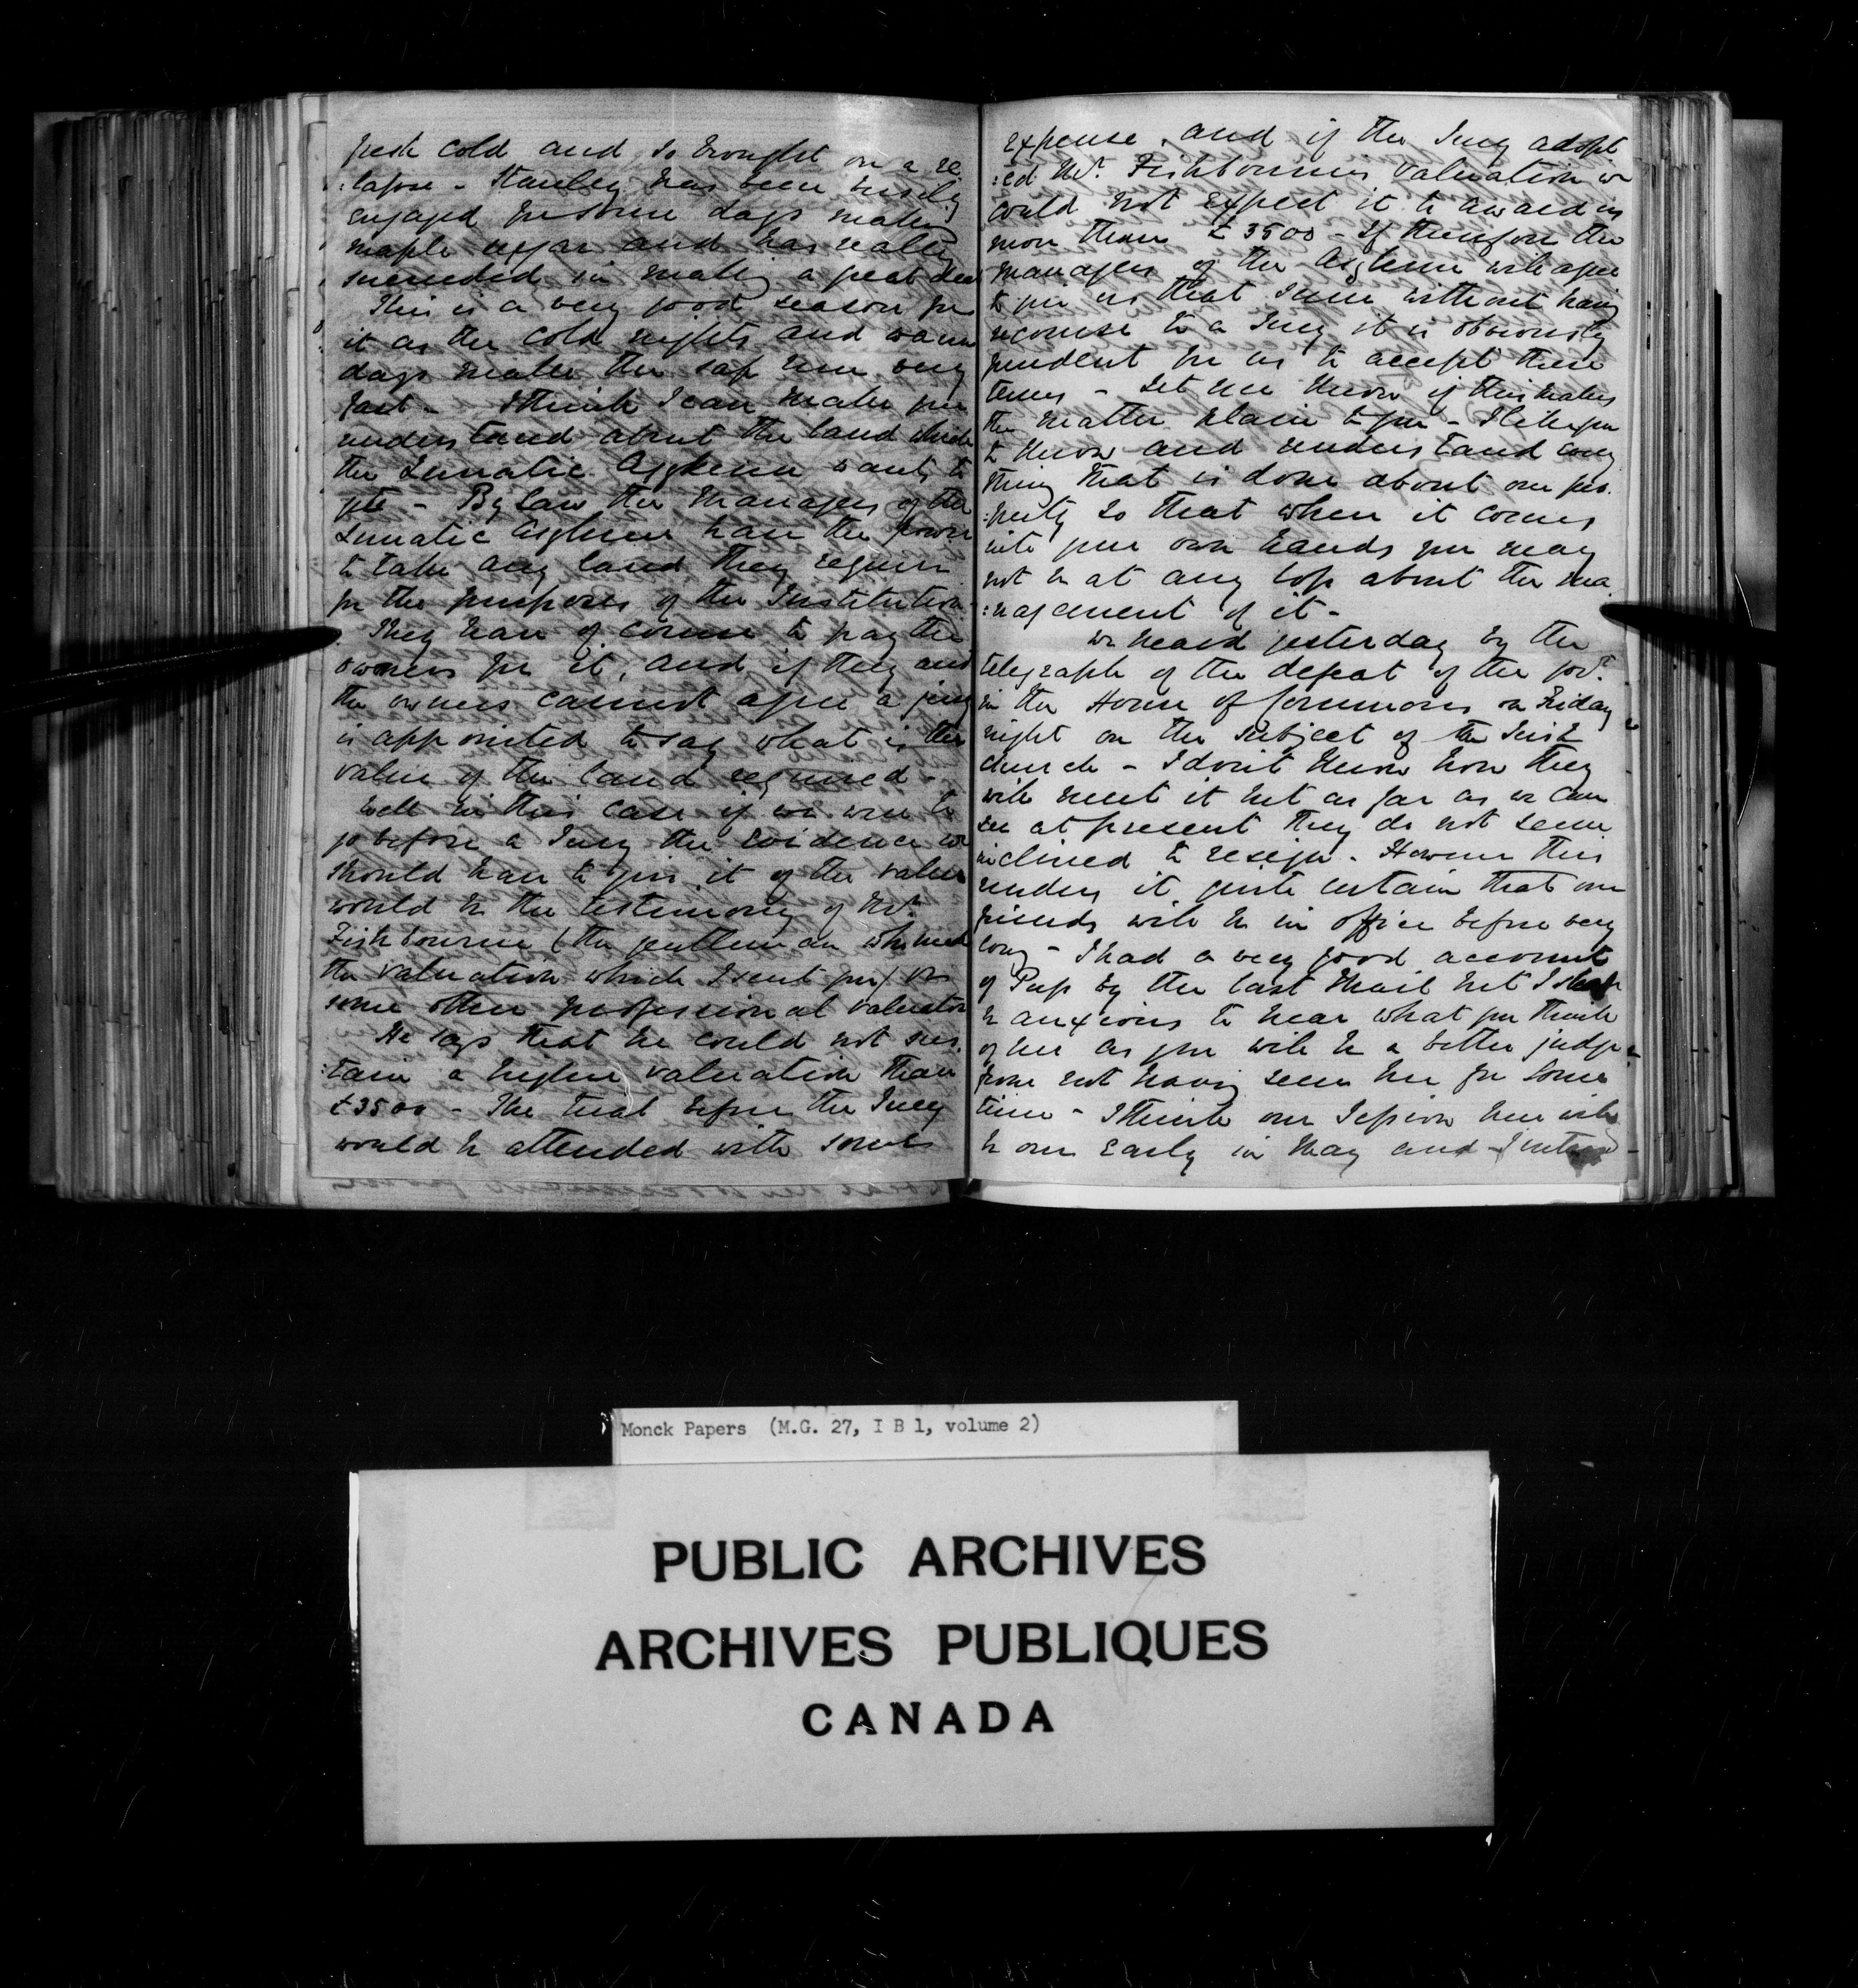 fresh cold and so brought on a re
:lapse - Stanley has been busily
engaged for some days making
maple sugar and has really
succeeded in making a great deal
This is a very good season for
it as the cold nights and warm
days make the sap run very
fast - I think I can make you
understand about the land which
the Lunatic Asylum wants to
get - By law the managers of the
Lunatic Asylum have the power
to take any land they require
for the purposes of the Institution
They have of course to pay the
owners for it, and if they and
the owners cannot agree a jury
is appointed to say what is the
value of the land required -
Well in this case if we were to
go before a Jury the evidence we
should have to give it of the value
would be the testimony of Mr.
Fishbourne (the gentleman who made
the valuation which I sent you) or
some other professional valuator
He says that he could not sus
:tain a higher valuation than
£3500 - The trial before the Jury
would be attended with some
expense, and if the Jury adopt
:ed Mr. Fishbourne's valuation we
could not expect it to award us
more than £3500 - If therefore the
managers of the Asylum will agree
to give us that sum without having
recourse to a Jury it is obviously
prudent for us to accept these
terms - Let me know if this makes
the matter plain to you - I like you
to know and understand every
thing that is done about our pro.
:perty so that when it comes
into your own hands you may
not be at any loss about the ma.
:nagement of it -
We heard yesterday by the
telegraph of the defeat of the govt.
in the House of Commons on Friday
night on the subject of the Irish
church - I don't know how they
will meet it but as far as we can
see at present they do not seem
inclined to resign. However this
renders it quite certain that our
friends will be in office before very
long - I had a very good account
of Pup by the last mail but I shall
be anxious to hear what you think
of her as you will be a better judge
from not having seen her for some
time - I think our Session here will
be over early in May and I intend
Monck Papers (M.G. 27, I B 1, volume 2)
PUBLIC ARCHIVES
ARCHIVES PUBLIQUES
CANADA